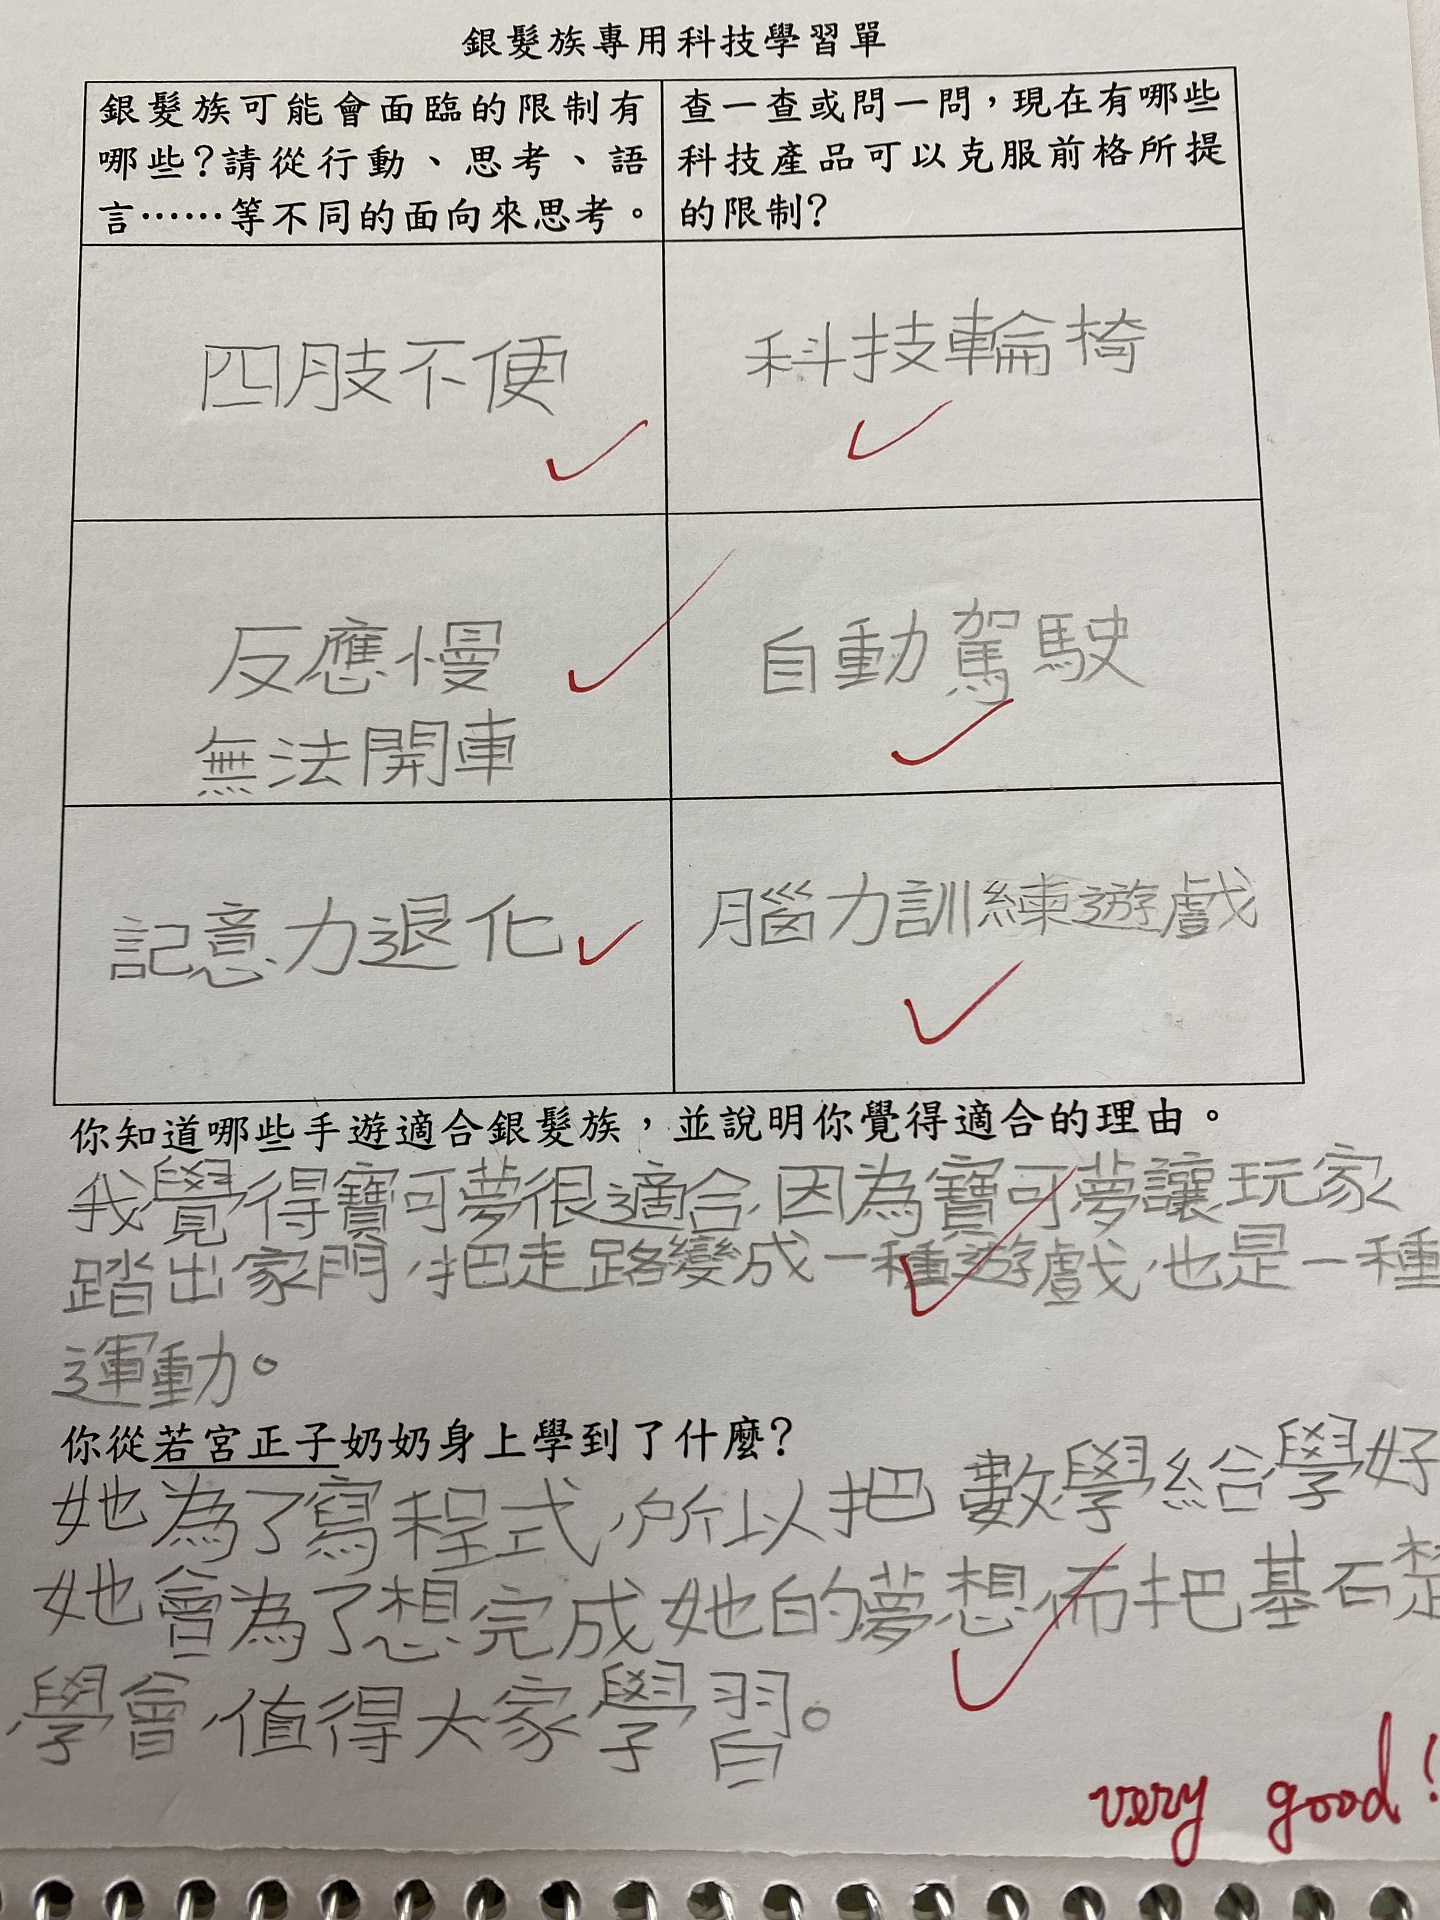 銀髮族專用科技學習單
銀髮族可能會面臨的限制有
哪些？請從行動、思考、語
言⋯⋯等不同的面向來思考。
查一查或問一問，現在有哪些
科技產品可以克服前格所提
的限制？
四肢不便
科技輪椅
反應慢
無法開車
自動駕駛
記意力退化
腦力訓練遊戲
你知道哪些手遊適合銀髮族，並說明你覺得適合的理由。
我覺得寶可夢很適合，因為寶可夢讓玩家
踏出家門，把走路變成一種遊戲，也是一種
運動。
你從若宮正子奶奶身上學到了什麼？
她為了寫程式，所以把數學給學好
她會為了想完成她的夢想而把基石楚
學會，值得大家學習。
very good!